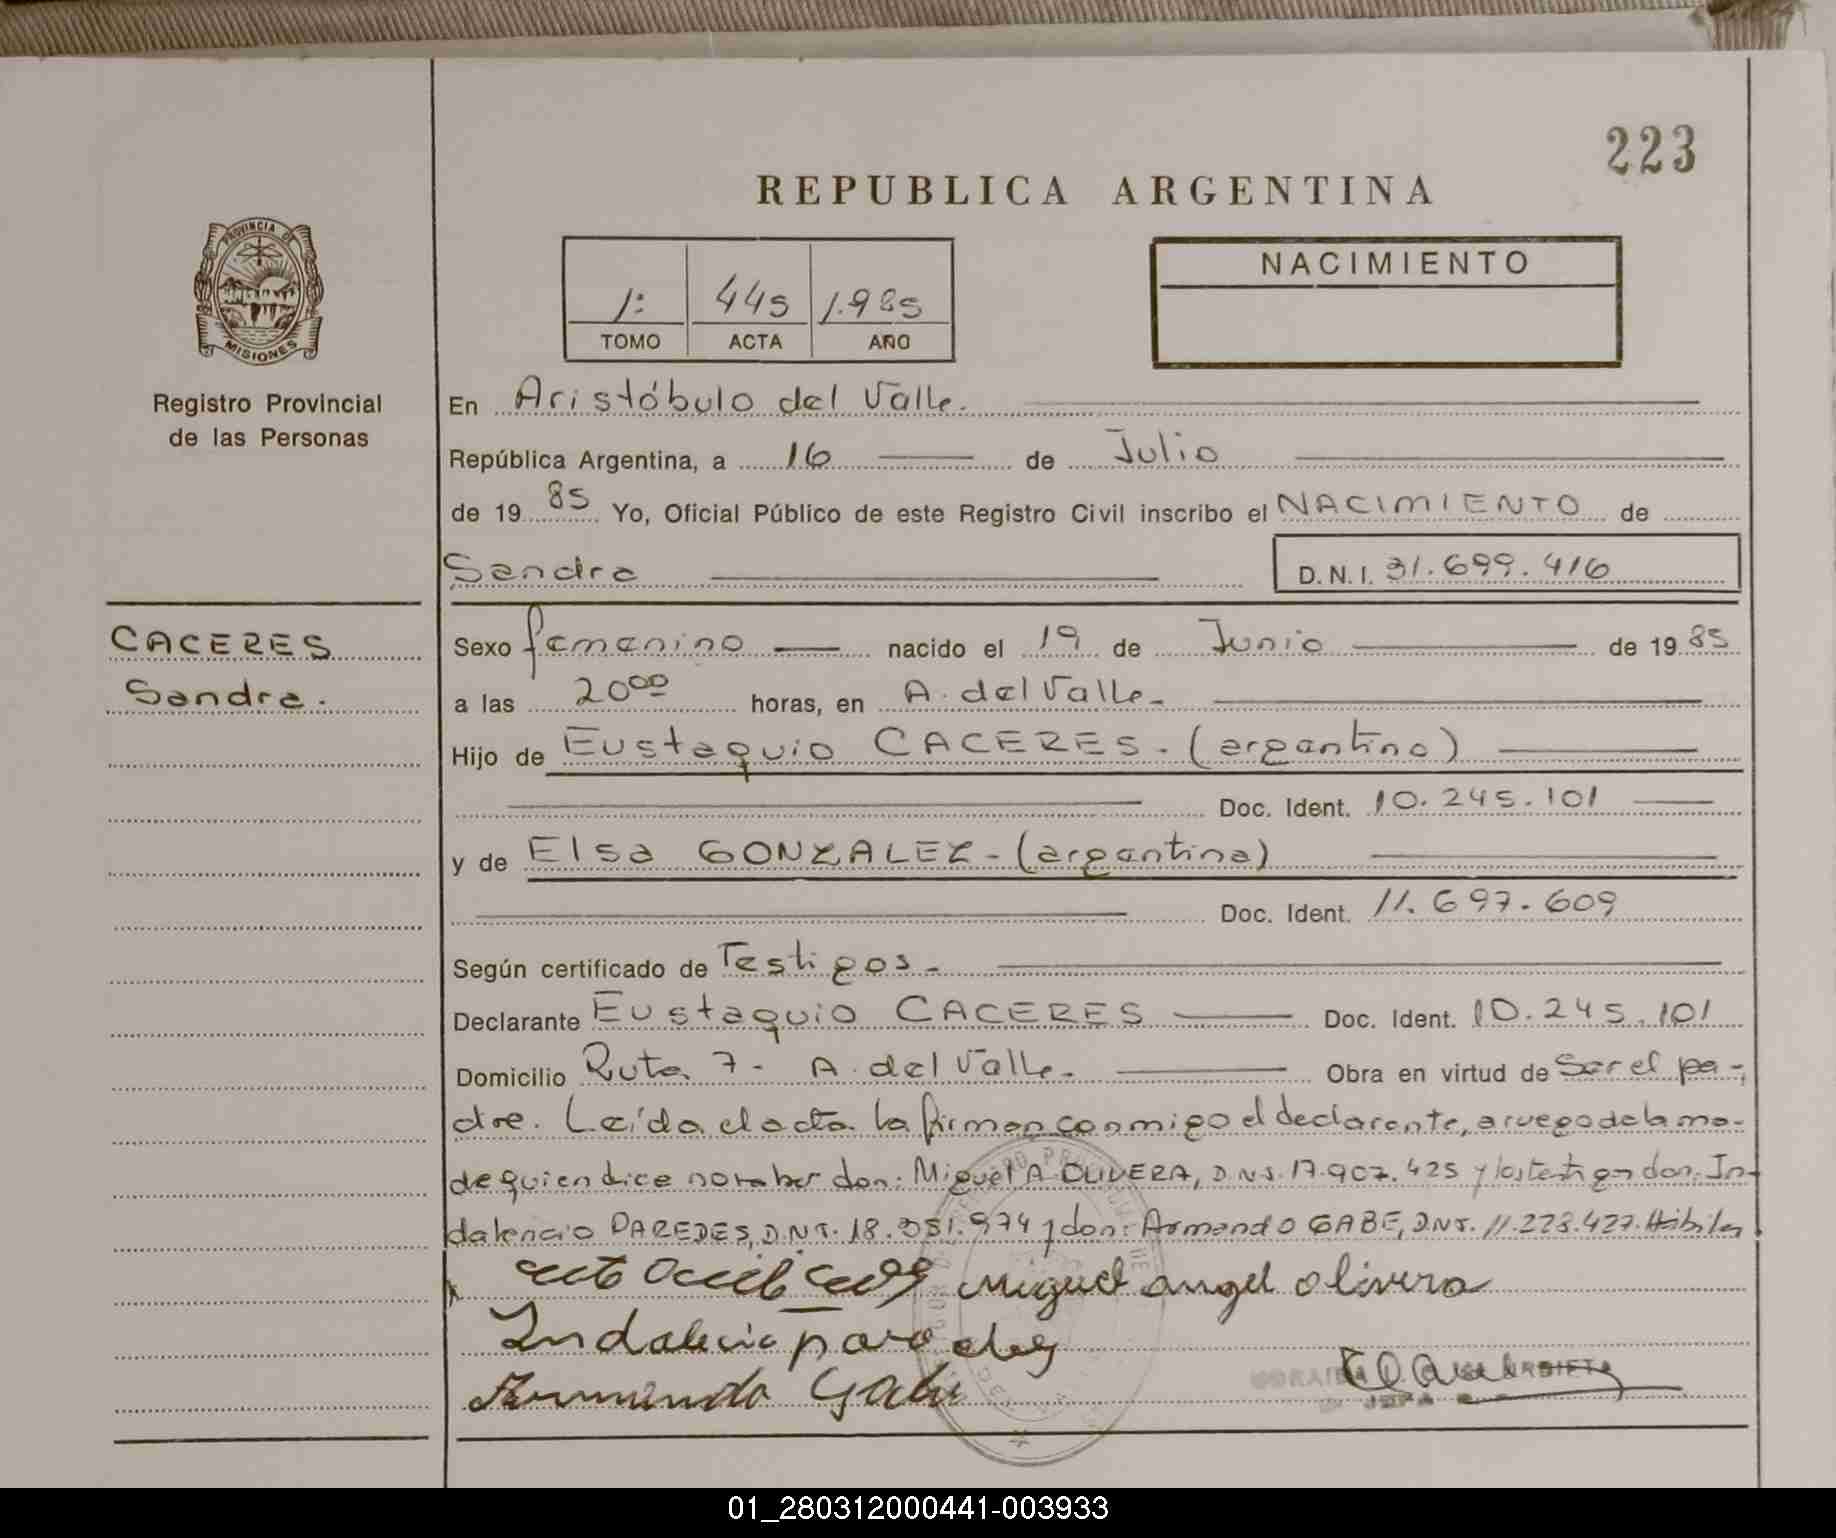 223
REPUBLICA ARGENTINA
PROVINCIA DE
MISIONES
Registro Provincial
de las Personas
1: 445 1.985
TOMO ACTA AÑO
NACIMIENTO
En Aristóbulo del Valle.
República Argentina, a 16 de Julio
de 19 85 Yo, Oficial Público de este Registro Civil inscribo el NACIMIENTO de
Sandra D.N.I. 31.699.416
CACERES
Sandra.
Sexo femenino nacido el 19 de Junio de 19 85
a las 20 00 horas, en A. del Valle-
Hijo de Eustaquio CACERES. (argentino)
Doc. Ident. 10.245.101
y de Elsa GONZALEZ-(argentina)
Doc. Ident. 11.697.609
Según certificado de Testigos-
Declarante Eustaquio CACERES Doc. Ident. 10.245.101
Domicilio Ruta 7- A. del Valle- Obra en virtud de Ser el pa-
dre. Leída el acta la firman conmigo el declarante, a ruego de la ma-
de quien dice no saber don: Miguel A OLIVERA, D.N.I. 17.907.425 y los testigos don: In-
dalencio PAREDES, D.N.I. 18.351.974 y don: Armando GABE, D.N.I. 11.223.427. Hábiles
Miguel angel olivera
Indalecio paredes
Armando Gabe
JEFA
01_280312000441-003933